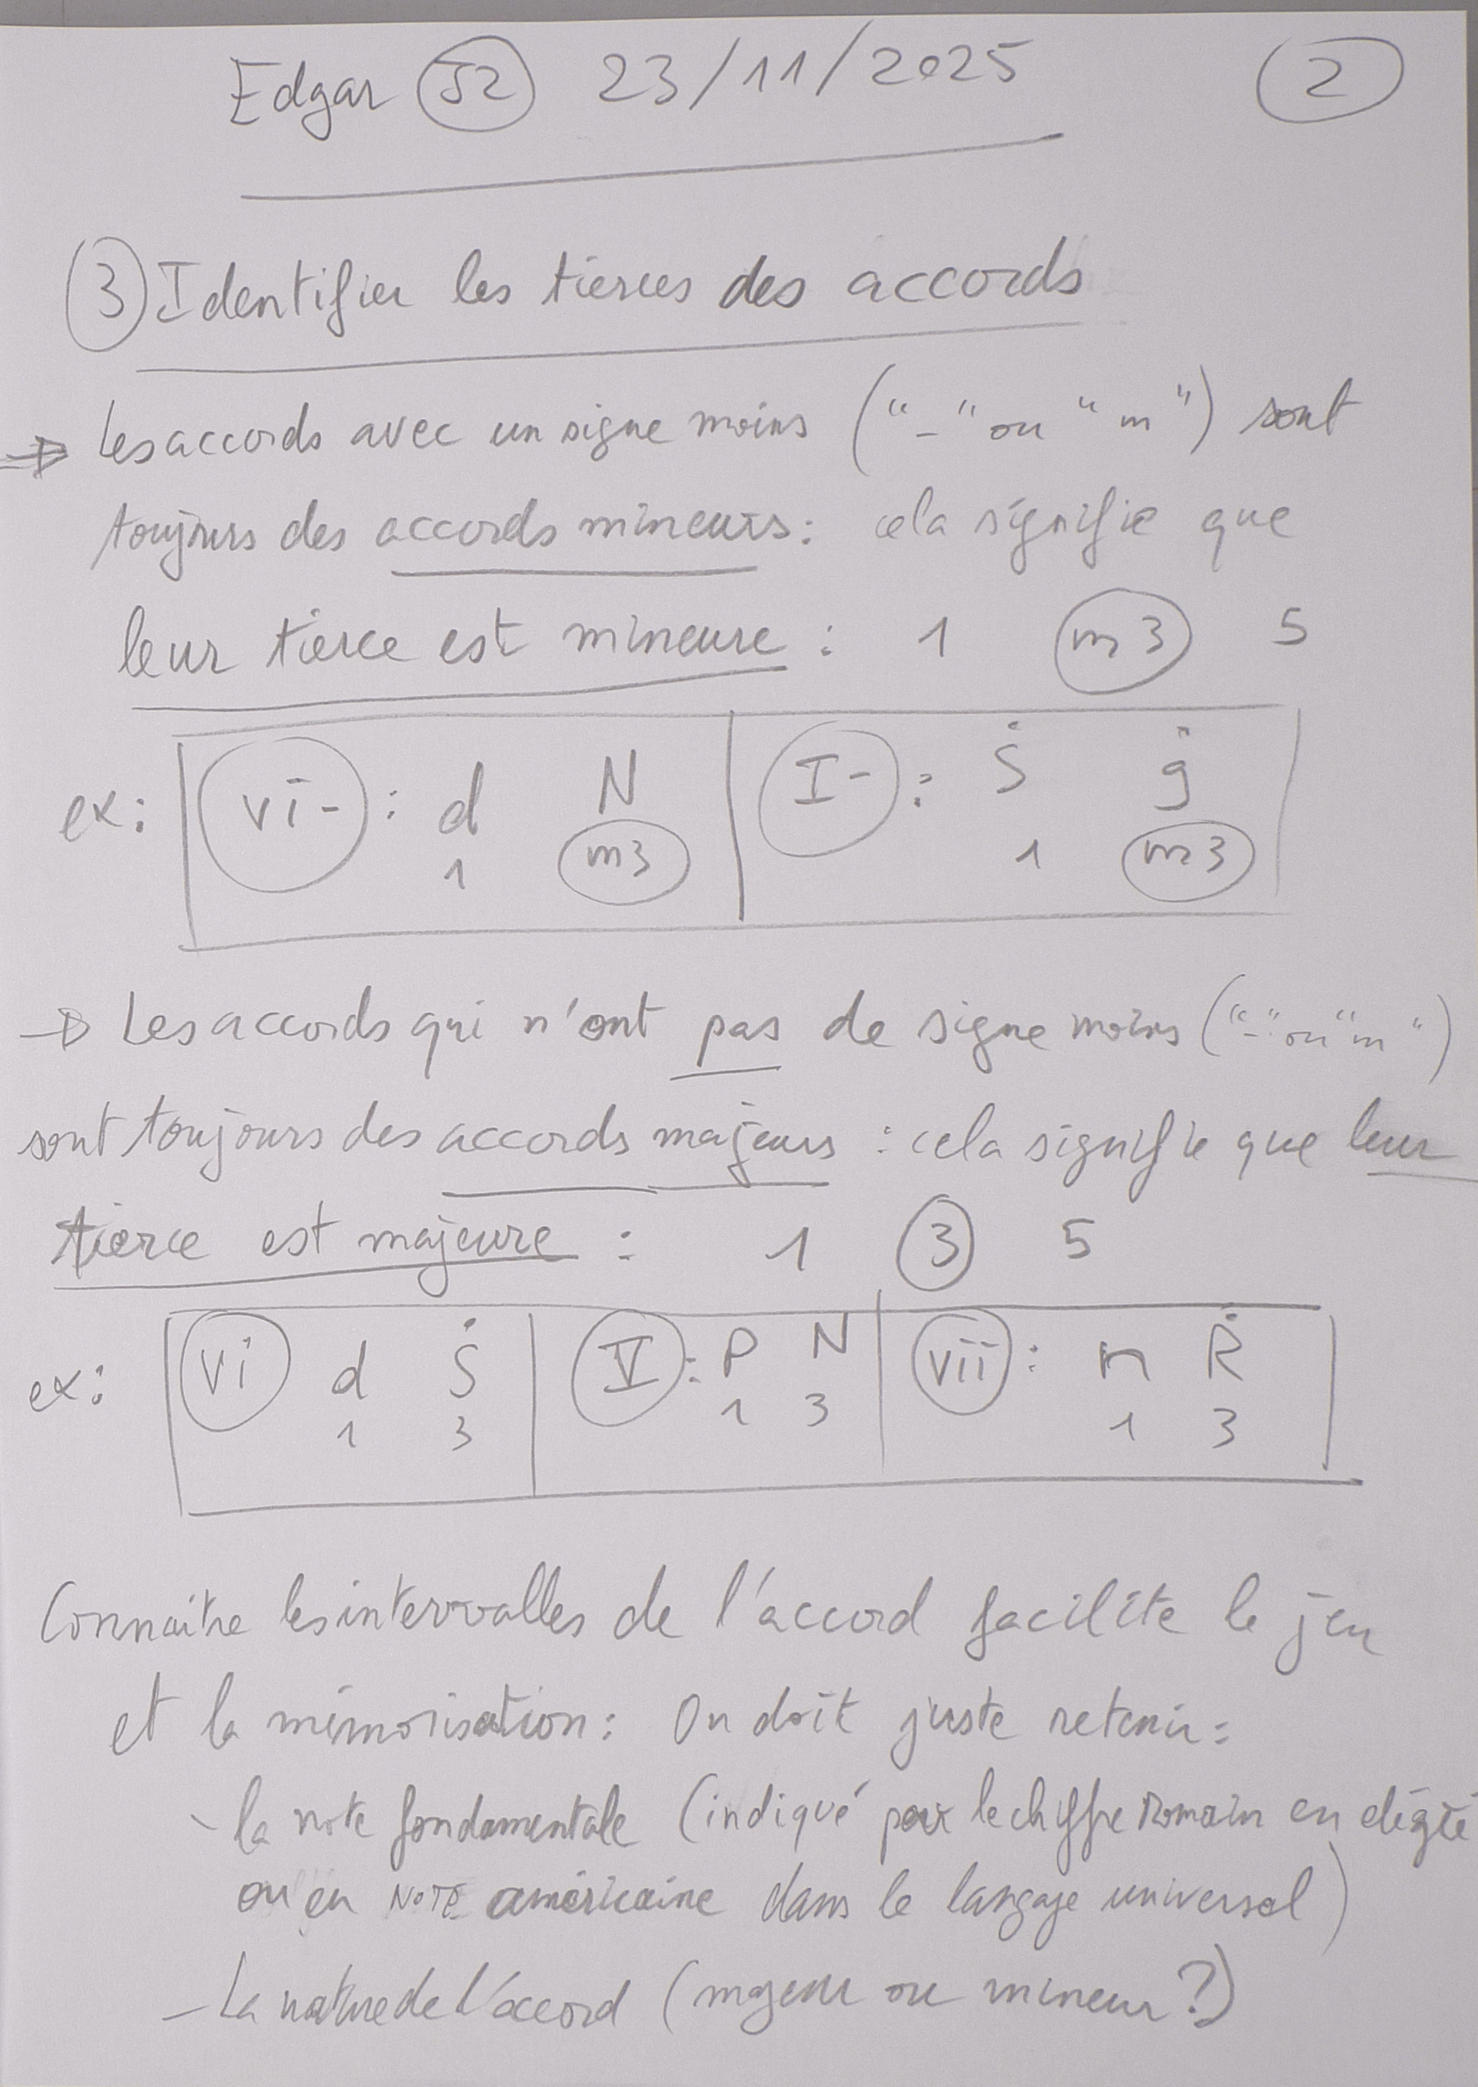 Edgar 52 23/11/2025 2
3 Identifier les tierces des accords
→ Les accords avec un signe moins ("-" ou "m") sont
toujours des accords mineurs : cela signifie que
leur tierce est mineure : 1 m3 5
ex: vi- : d N I- : Ṡ ġ
1 m3 1 m3
→ Les accords qui n'ont pas de signe moins ("-" ou "m")
sont toujours des accords majeurs : cela signifie que leur
tierce est majeure : 1 3 5
ex: vi d Ṡ V : P N vii : n Ṙ
1 3 1 3 1 3
Connaître les intervalles de l'accord facilite le jeu
et la mémorisation : On doit juste retenir :
- la note fondamentale (indiqué par le chiffre romain en degré
ou en NOTE américaine dans le langage universel)
- La nature de l'accord (majeur ou mineur ?)